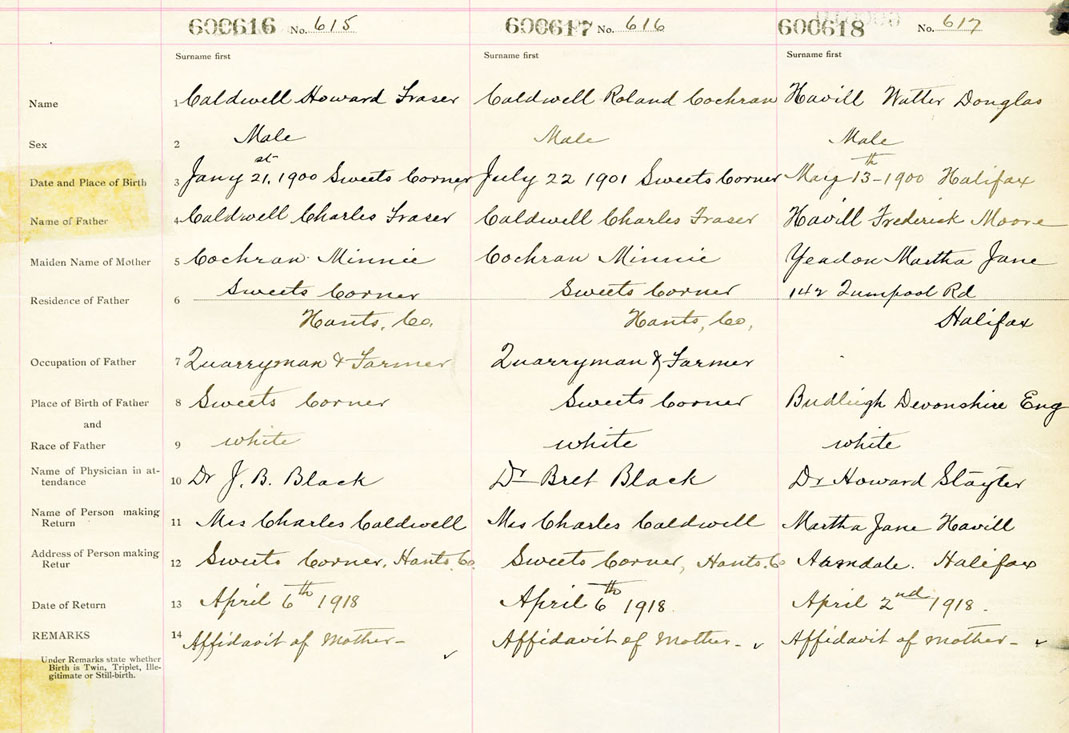 600616 No. 615 600617 No. 616 600618 No. 617
Surname first Surname first Surname first
Name 1 Caldwell Howard Fraser Caldwell Roland Cochran Havill Walter Douglas
Sex 2 Male Male Male
Date and Place of Birth 3 Jany 21st, 1900 Sweets Corner July 22 1901 Sweets Corner May 13th - 1900 Halifax
Name of Father 4 Caldwell Charles Fraser Caldwell Charles Fraser Havill Frederick Moore
Maiden Name of Mother 5 Cochran Minnie Cochran Minnie Yeadon Martha Jane
Residence of Father 6 Sweets Corner Sweets Corner 142 Rd
Hants, Co. Hants, Co, Halifax
Occupation of Father 7 Quarryman & Farmer Quarryman & Farmer
Place of Birth of Father 8 Sweets Corner Sweets Corner Budleigh Devonshire Eng
and
Race of Father 9 white white white
Name of Physician in at- 10 Dr J. B. Black Dr Bret Black Dr Howard Slayter
tendance
Name of Person making 11 Mrs Charles Caldwell Mrs Charles Caldwell Martha Jane Havill
Return
Address of Person making 12 Sweets Corner, Hants. Co Sweets Corner, Hants. Co Halifax
Retur
Date of Return 13 April 6th 1918 April 6th 1918. April 2nd 1918.
REMARKS 14 Affidavit of Mother - ✓ Affidavit of Mother - ✓ Affidavit of Mother - ✓
Under Remarks state whether
Birth is Twin, Triplet, Ille-
gitimate or Still-birth.